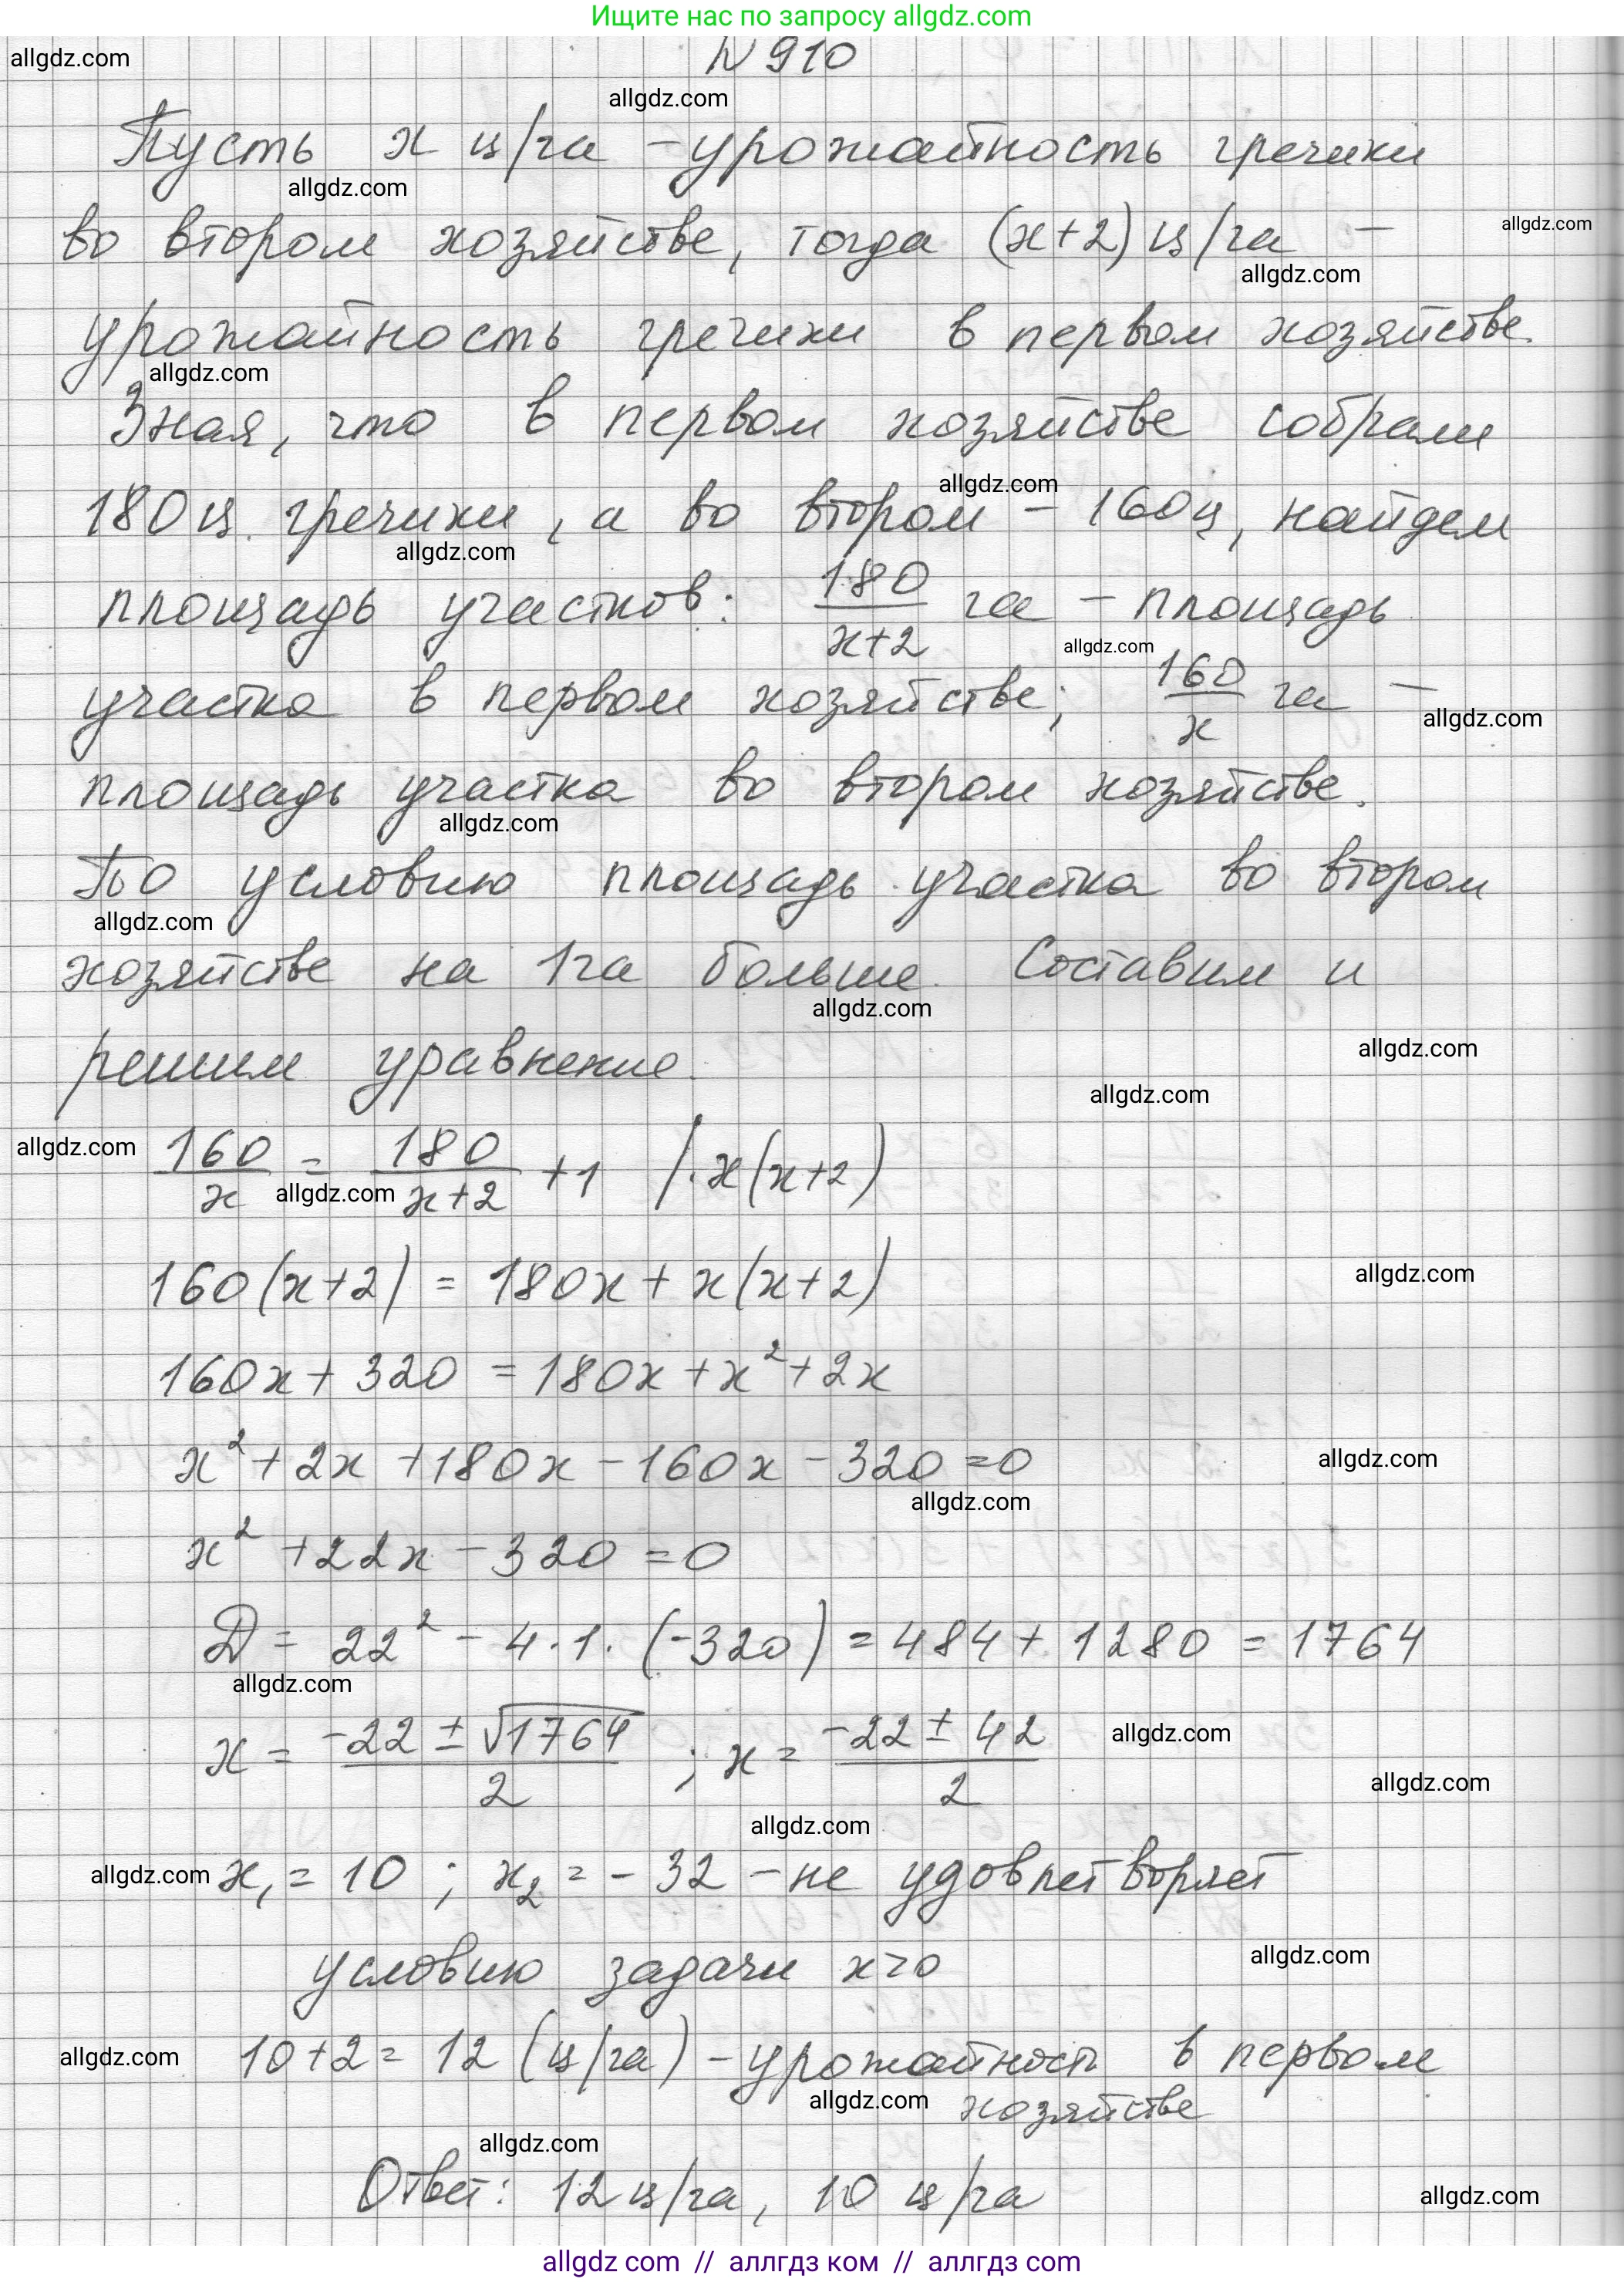 Ищите нас по запросу allgdz.com
allgdz.com
N 910
allgdz.com
Пусть x ц/га - урожайность гречихи
allgdz.com
во втором хозяйстве, тогда (x+2) ц/га -
allgdz.com
allgdz.com
урожайность гречихи в первом хозяйстве.
allgdz.com
Зная, что в первом хозяйстве собрали
allgdz.com
180 ц. гречихи, а во втором - 160ц, найдем
allgdz.com
площадь участков: 180/(x+2) га - площадь
allgdz.com
участка в первом хозяйстве; 160/x га -
allgdz.com
площадь участка во втором хозяйстве.
allgdz.com
По условию площадь участка во втором
allgdz.com
хозяйстве на 1га больше. Составим и
allgdz.com
решим уравнение.
allgdz.com
allgdz.com
allgdz.com
160/x = 180/(x+2) + 1 / · x(x+2)
allgdz.com
160(x+2) = 180x + x(x+2)
allgdz.com
160x + 320 = 180x + x² + 2x
x² + 2x + 180x - 160x - 320 = 0
allgdz.com
allgdz.com
x² + 22x - 320 = 0
D = 22² - 4 · 1 · (-320) = 484 + 1280 = 1764
allgdz.com
x = (-22 ± √1764)/2 ; x = (-22 ± 42)/2
allgdz.com
allgdz.com
allgdz.com
allgdz.com
x₁ = 10 ; x₂ = - 32 - не удовлетворяет
условию задачи x>0
allgdz.com
allgdz.com
10+2 = 12 (ц/га) - урожайность в первом
allgdz.com
хозяйстве
allgdz.com
Ответ: 12 ц/га, 10 ц/га
allgdz.com
allgdz com // аллгдз ком // аллгдз com